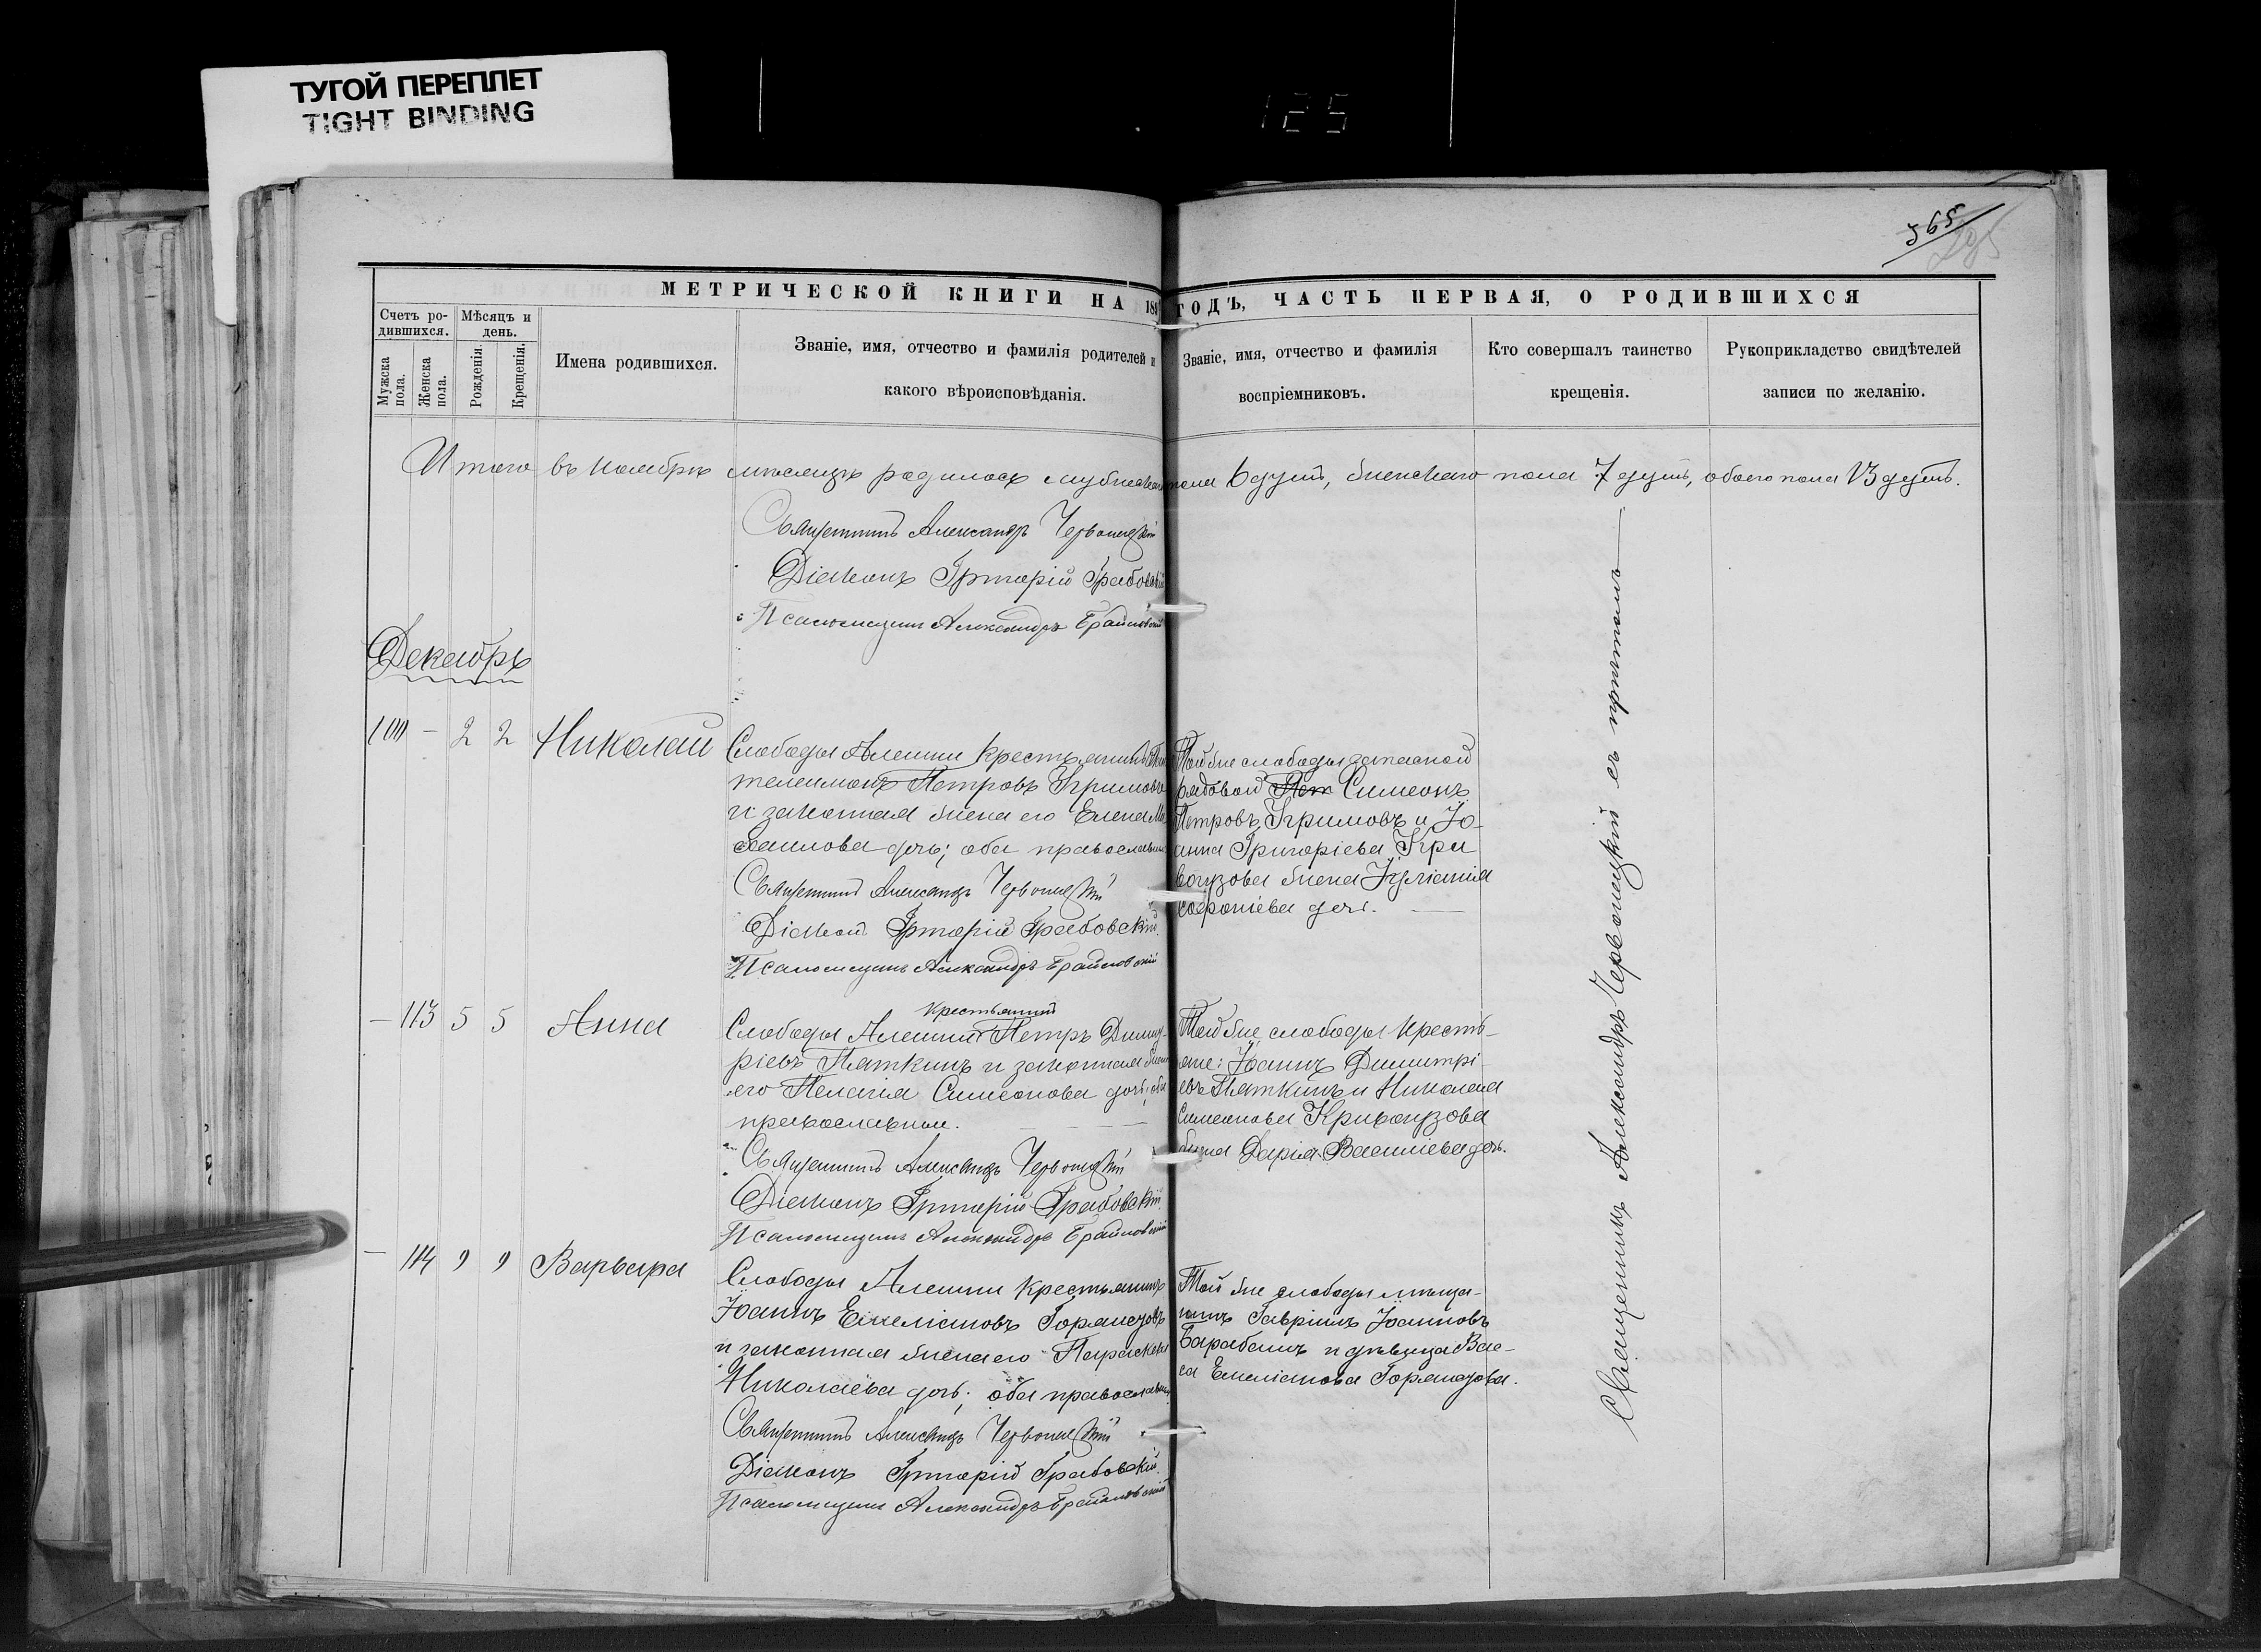 ТУГОЙ ПЕРЕПЛЕТ
TIGHT BINDING
125
365
МЕТРИЧЕСКОЙ КНИГИ НА 189 ГОДЪ, ЧАСТЬ ПЕРВАЯ, О РОДИВШИХСЯ
Счетъ ро-
дившихся.
Мѣсяцъ и
день.
Мужска
пола.
Женска
пола.
Рожденія.
Крещенія.
Имена родившихся.
Званіе, имя, отчество и фамилія родителей и
какого вѣроисповѣданія.
Званіе, имя, отчество и фамилія
воспріемниковъ.
Кто совершалъ таинство
крещенія.
Рукоприкладство свидѣтелей
записи по желанію.
Итого въ ноябрѣ мѣсяцѣ родилось мужескаго пола 6 душъ, женскаго пола 7 душъ, обоего пола 13 душъ.
Священникъ Александръ Червонецкій
Діаконъ Григорій Грабовскій
Псаломщикъ Александръ Брайловскій
Декабрь
100 - 2 2 Николай
Слободы Алешки крестьянинъ Пан
телеимонъ Петровъ Угримовъ
и законная жена его Елена Ми
хаилова дочь; оба православные
Священникъ Александръ Червонецкій
Діаконъ Григорій Грабовскій.
Псаломщикъ Александръ Брайловскій
Той же слободы запасной
рядовой Пет Симеонъ
Петровъ Угримовъ и Іо-
анна Григоріева Кри
вогузова жена Іуліанія
Софроніева дочь.
- 113 5 5 Анна
крестьянинъ
Слободы Алешки Петръ Димит-
ріевъ Пяткинъ и законная жена
его Пелагія Симеонова дочь; оба
православные.
Священникъ Александръ Червонецкій
Діаконъ Григорій Грабовскій.
Псаломщикъ Александръ Брайловскій
Той же слободы кресть-
яне: Іоаннъ Димитрі-
евъ Пяткинъ и Николая
Симеонова Кривогузова
жена Дарія Василіева дочь.
- 114 9 9 Варвара
Слободы Алешки крестьянинъ
Іоаннъ Емеліановъ
и законная жена его Параскева
Николаева дочь; оба православные
Священникъ Александръ Червонецкій
Діаконъ Григорій Грабовскій.
Псаломщикъ Александръ Брайловскій
Той же слободы мѣща-
нинъ Гавріилъ Іоанновъ
Барабашъ и дѣвица Вас-
са Емеліанова
Священникъ Александръ Червонецкій съ причтомъ